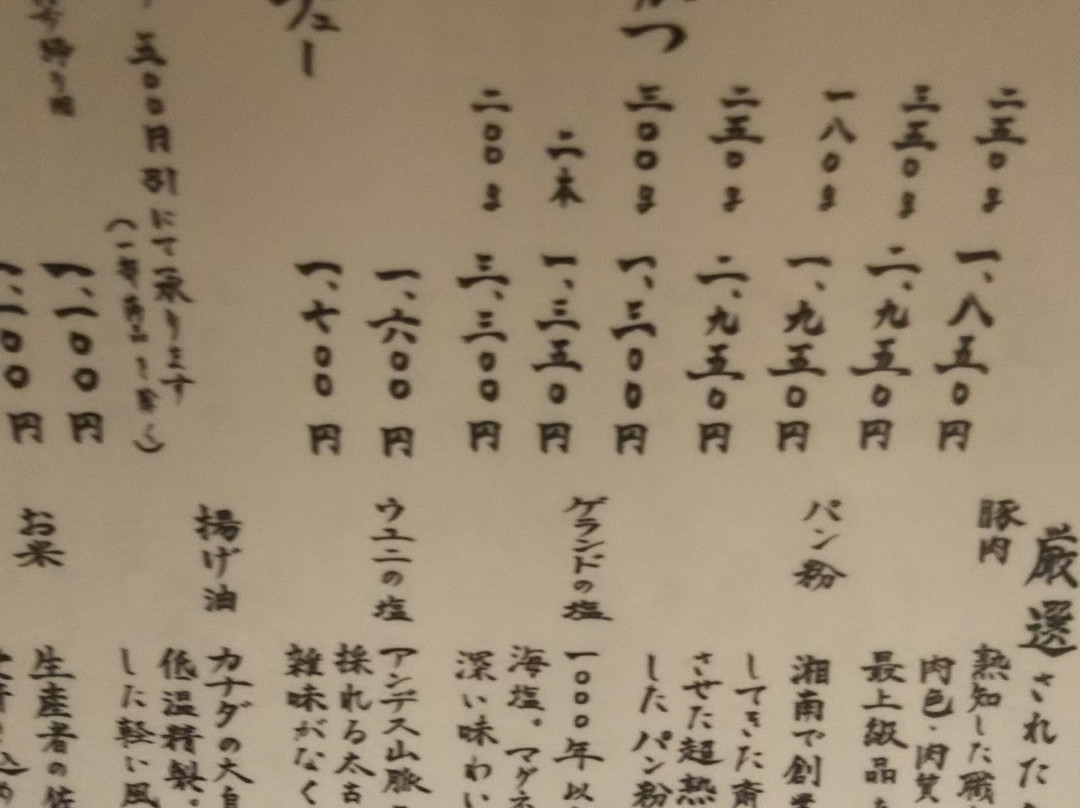 二五〇g 一、八五〇円
三五〇g 二、九五〇円
一八〇g 一、九五〇円
二五〇g 二、九五〇円
かつ
三〇〇g 一、三〇〇円
二本 一、三五〇円
二〇〇g 三、三〇〇円
一、六〇〇円
ュー
一、七〇〇円
五〇〇円引にて承ります
一、一〇〇円
一、一〇〇円
厳選された
豚肉
熟知した職
肉色・肉質
最上級品
パン粉
湘南で創業
してきた斎
させた超熟
したパン粉
ゲランドの塩
一〇〇〇年以
海塩。マグネ
深い味わい
ウユニの塩
アンデス山脈
採れる太古
雑味がなく
揚げ油
カナダの大自
低温精製。
した軽い風
お米
生産者の佐